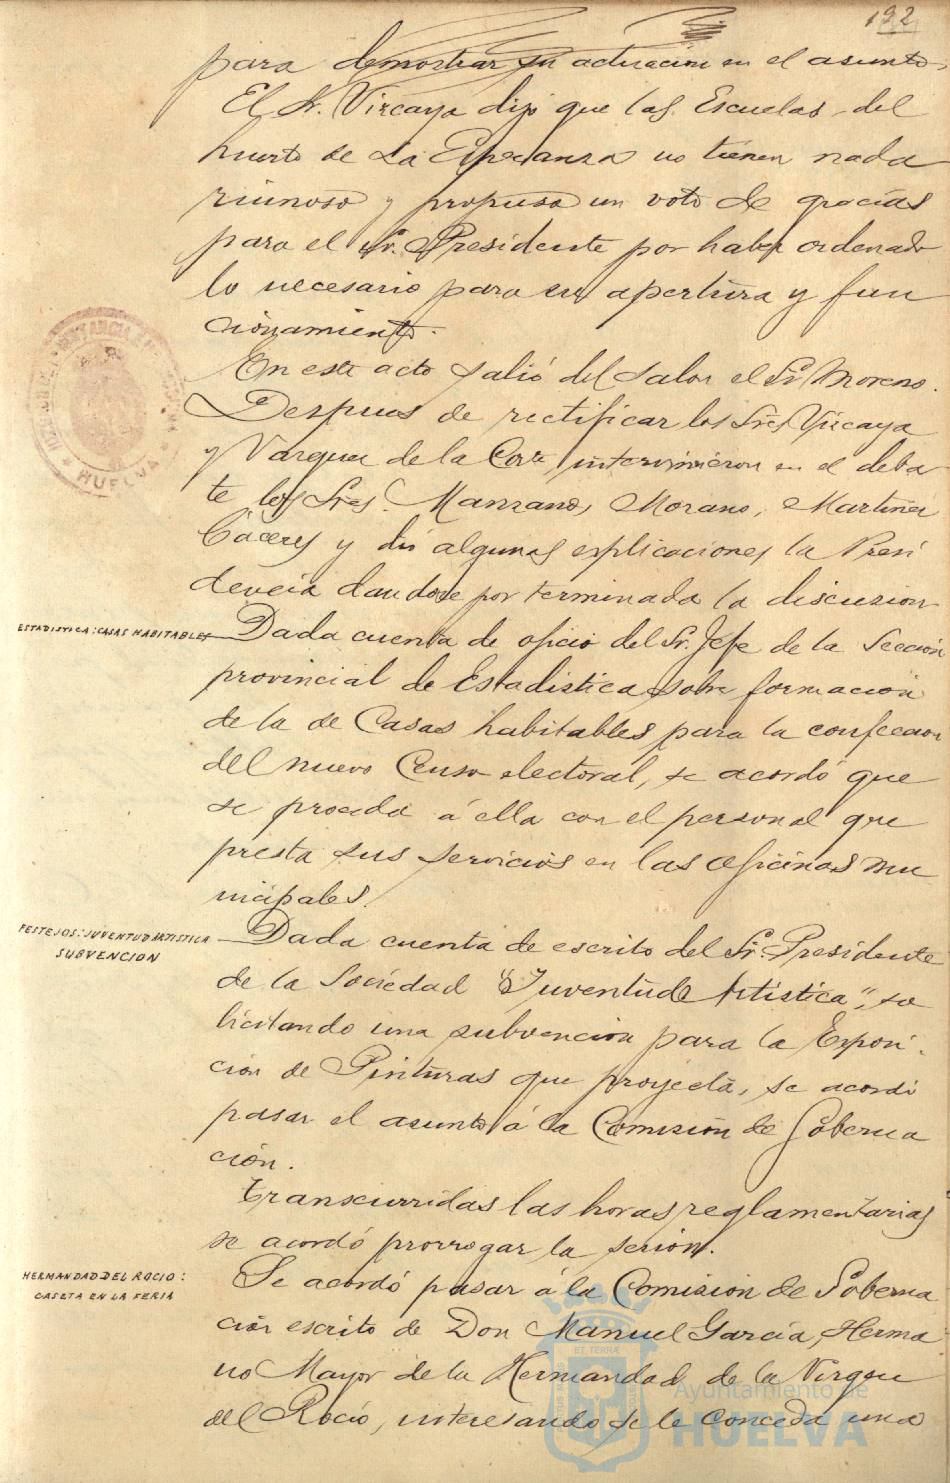 192
para demostrar su actuación en el asunto.
El Sr. Vizcaya dijo que las Escuelas del
huerto de La Esperanza no tienen nada
ruinoso y propuso un voto de gracias
para el Sr. Presidente por haber ordenado
lo necesario para su apertura y fun
cionamiento.
En este acto salió del salon el Sr Moreno.
Despues de rectificar los Sres Vizcaya
y Vazquez de la Corte intervinieron en el deba
te los Sres. Manzano, Morano, Martinez
Cáceres y dió algunas explicaciones la Presi
dencia dandose por terminada la discusion
ESTADISTICA: CASAS HABITABLES
Dada cuenta de oficio del Sr. Jefe de la Sección
provincial de Estadistica sobre formación
de la de Casas habitables para la confeccion
del nuevo Censo electoral, se acordó que
se proceda á ella con el personal que
presta sus servicios en las oficinas mu
nicipales.
FESTEJOS: JUVENTUD ARTISTICA
SUBVENCION
Dada cuenta de escrito del Sr. Presidente
de la Sociedad "Juventud Artistica", so
licitando una subvención para la Exposi
ción de Pinturas que proyecta, se acordó
pasar el asunto á la Comisión de Goberna
ción.
Transcurridas las horas reglamentarias
se acordó prorrogar la sesión.
HERMANDAD DEL ROCIO:
CASETA EN LA FERIA
Se acordó pasar á la Comision de Goberna
ción escrito de Don Manuel García, Herma
no Mayor de la Hermandad de la Virgen
del Rocío, interesando se le conceda una
HUELVA
Ayuntamiento de
HUELVA